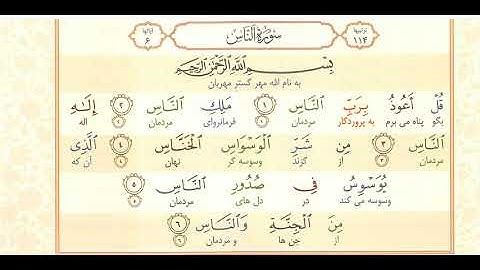 آیاتها ۶ سُورَةُ النَّاسِ ترتیبها ۱۱۴
بِسْمِ اللَّهِ الرَّحْمَٰنِ الرَّحِيمِ
به نام الله مهر گستر مهربان
قُلْ أَعُوذُ بِرَبِّ النَّاسِ ۱ مَلِكِ النَّاسِ ۲ إِلَٰهِ
بگو پناه می برم به پروردگار مردمان فرمانروای مردمان اله
النَّاسِ ۳ مِن شَرِّ الْوَسْوَاسِ الْخَنَّاسِ ۴ الَّذِي
مردمان از گزند وسوسه گر نهان آن که
يُوَسْوِسُ فِي صُدُورِ النَّاسِ ۵
وسوسه می کند در دل های مردمان
مِنَ الْجِنَّةِ وَالنَّاسِ ۶
از جن ها و مردمان